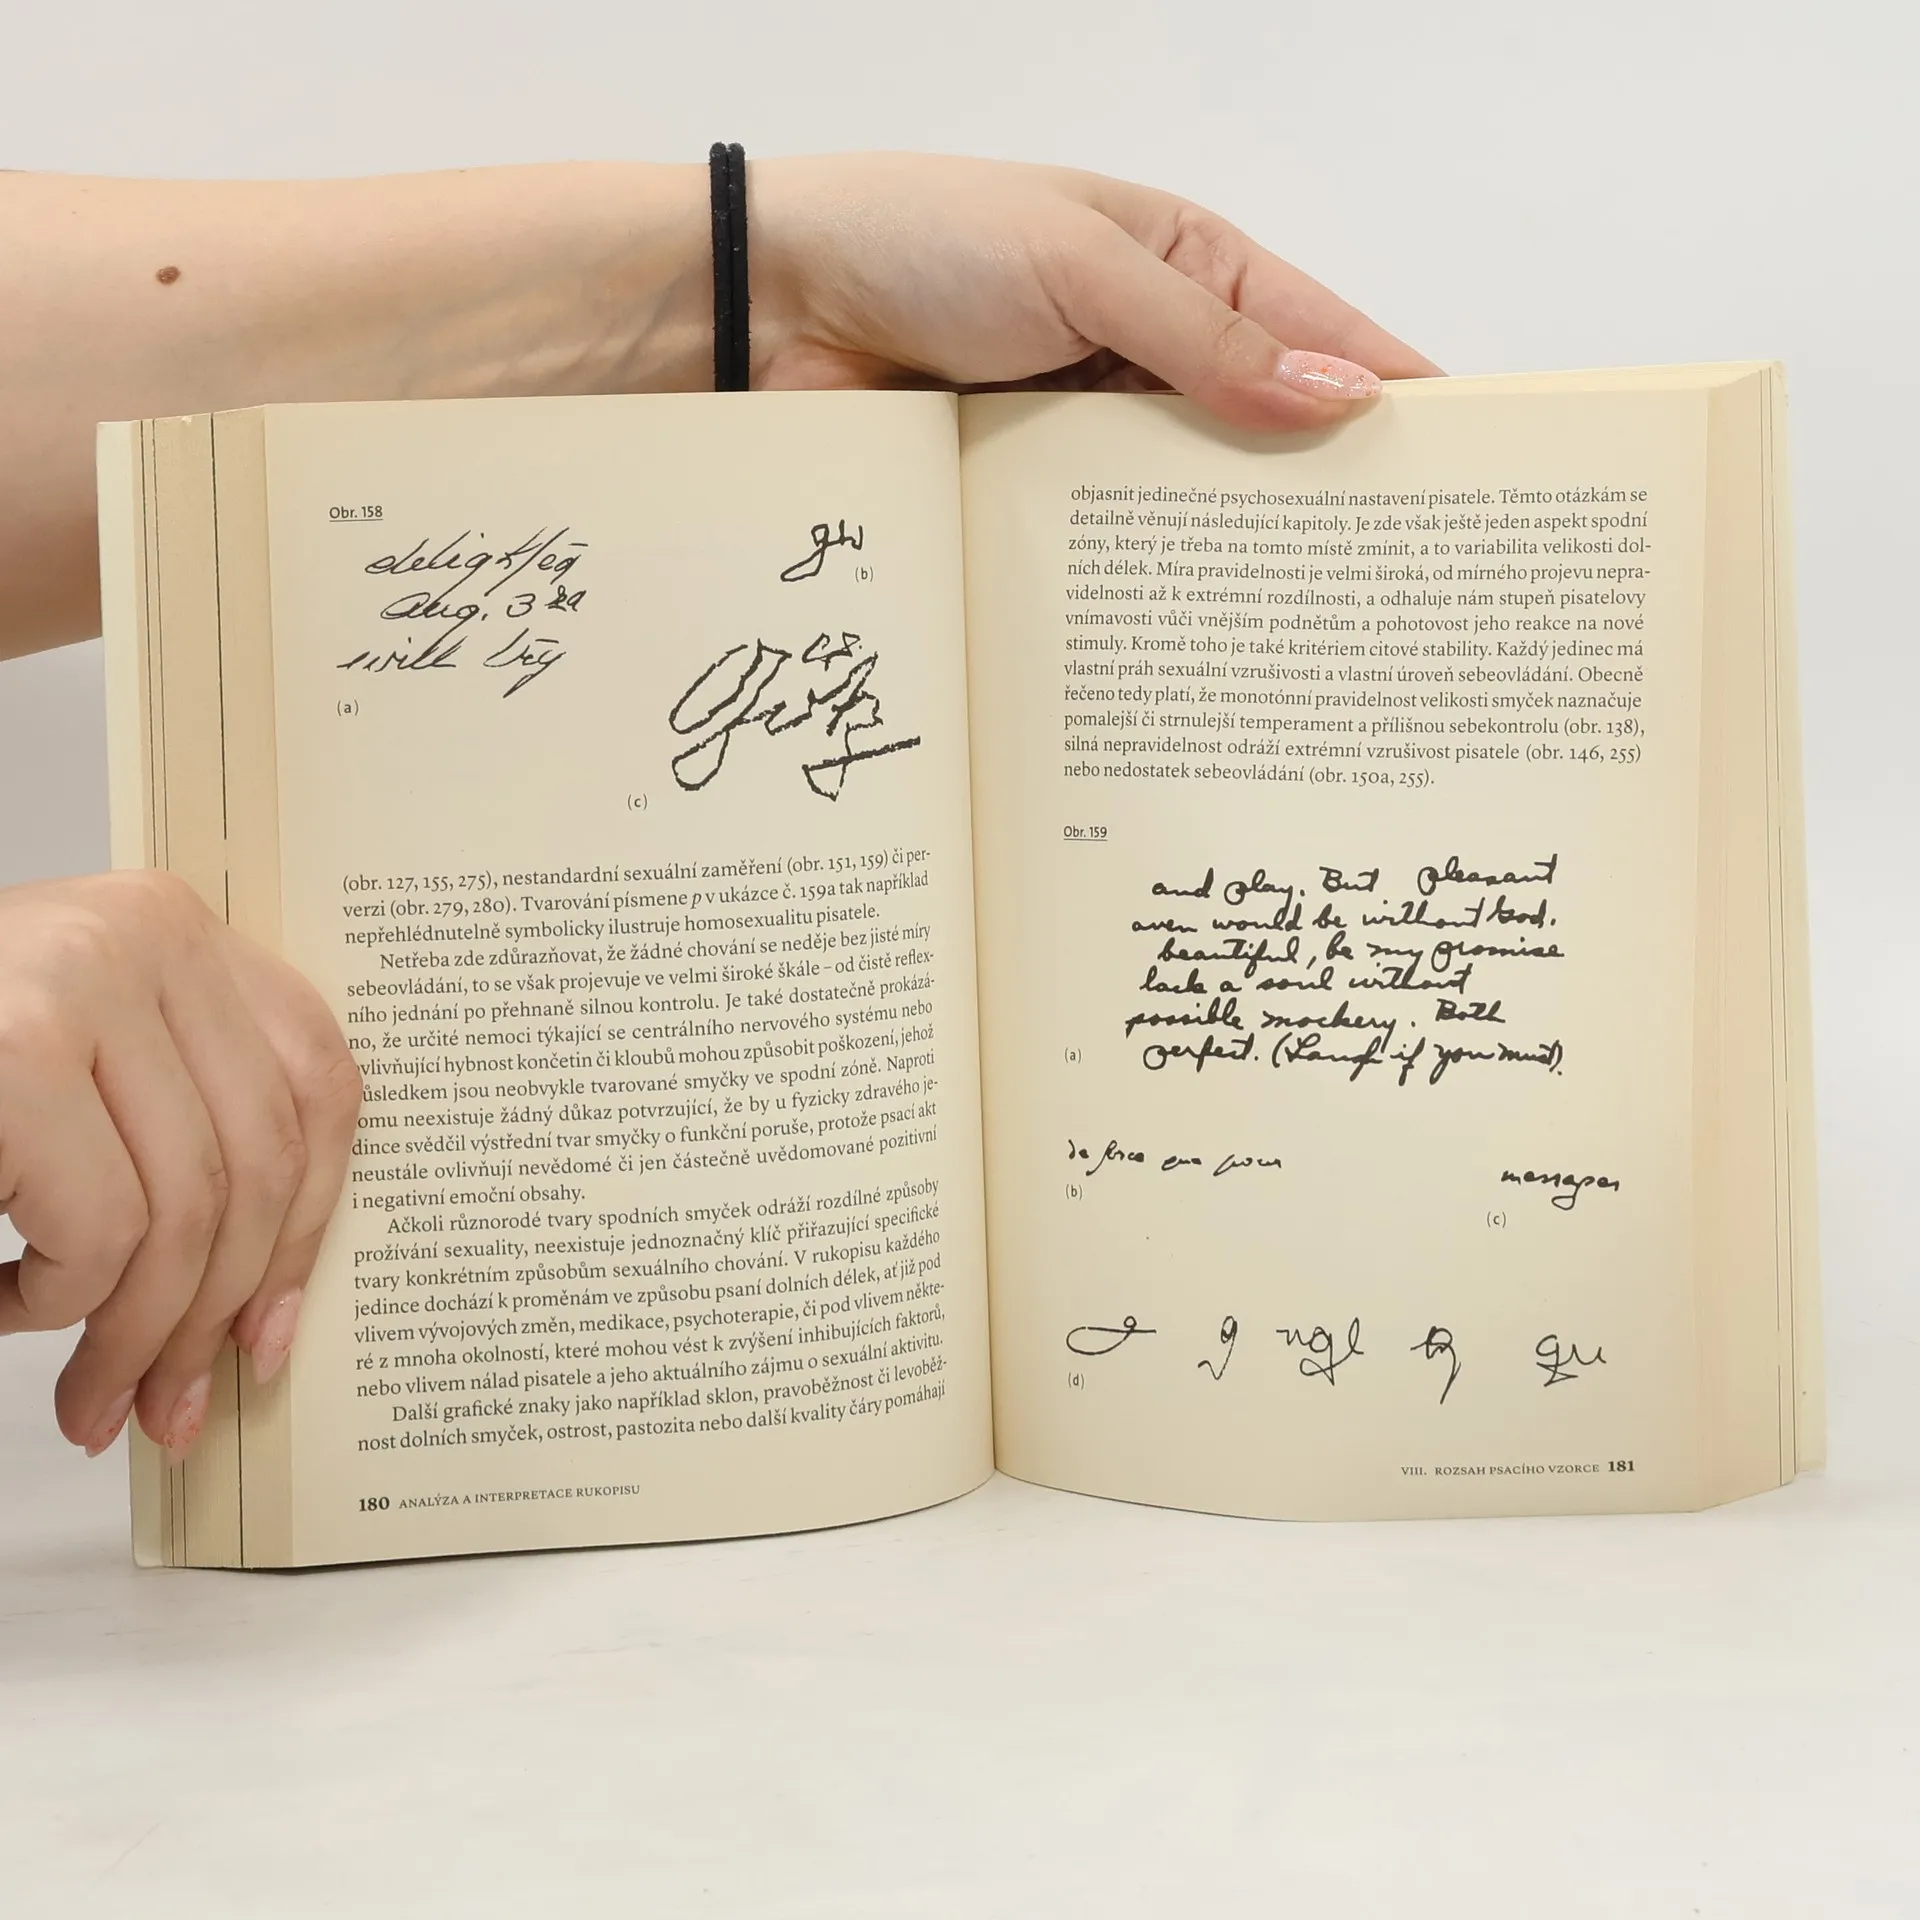 Obr. 158
Aug. 3
will try
(a)
(b)
(c)
(obr. 127, 155, 275), nestandardní sexuální zaměření (obr. 151, 159) či per-
verzi (obr. 279, 280). Tvarování písmene p v ukázce č. 159a tak například
nepřehlédnutelně symbolicky ilustruje homosexualitu pisatele.
Netřeba zde zdůrazňovat, že žádné chování se neděje bez jisté míry
sebeovládání, to se však projevuje ve velmi široké škále – od čistě reflex-
ního jednání po přehnaně silnou kontrolu. Je také dostatečně prokázá-
no, že určité nemoci týkající se centrálního nervového systému nebo
ovlivňující hybnost končetin či kloubů mohou způsobit poškození, jehož
ůsledkem jsou neobvykle tvarované smyčky ve spodní zóně. Naproti
omu neexistuje žádný důkaz potvrzující, že by u fyzicky zdravého je-
dince svědčil výstřední tvar smyčky o funkční poruše, protože psací akt
neustále ovlivňují nevědomé či jen částečně uvědomované pozitivní
i negativní emoční obsahy.
Ačkoli různorodé tvary spodních smyček odráží rozdílné způsoby
prožívání sexuality, neexistuje jednoznačný klíč přiřazující specifické
tvary konkrétním způsobům sexuálního chování. V rukopisu každého
jedince dochází k proměnám ve způsobu psaní dolních délek, ať již pod
vlivem vývojových změn, medikace, psychoterapie, či pod vlivem někte-
ré z mnoha okolností, které mohou vést k zvýšení inhibujících faktorů,
nebo vlivem nálad pisatele a jeho aktuálního zájmu o sexuální aktivitu.
Další grafické znaky jako například sklon, pravoběžnost či levoběž-
nost dolních smyček, ostrost, pastozita nebo další kvality čáry pomáhají
180 ANALÝZA A INTERPRETACE RUKOPISU
objasnit jedinečné psychosexuální nastavení pisatele. Těmto otázkám se
detailně věnují následující kapitoly. Je zde však ještě jeden aspekt spodní
zóny, který je třeba na tomto místě zmínit, a to variabilita velikosti dol-
ních délek. Míra pravidelnosti je velmi široká, od mírného projevu nepra-
videlnosti až k extrémní rozdílnosti, a odhaluje nám stupeň pisatelovy
vnímavosti vůči vnějším podnětům a pohotovost jeho reakce na nové
stimuly. Kromě toho je také kritériem citové stability. Každý jedinec má
vlastní práh sexuální vzrušivosti a vlastní úroveň sebeovládání. Obecně
řečeno tedy platí, že monotónní pravidelnost velikosti smyček naznačuje
pomalejší či strnulejší temperament a přílišnou sebekontrolu (obr. 138),
silná nepravidelnost odráží extrémní vzrušivost pisatele (obr. 146, 255)
nebo nedostatek sebeovládání (obr. 150a, 255).
Obr. 159
and play. But pleasant
even would be without God.
beautiful, be my promise
lack a soul without
possible mockery. Both
(a) perfect. (Laugh if you must).
(b)
messages
(c)
(d)
VIII. ROZSAH PSACÍHO VZORCE 181